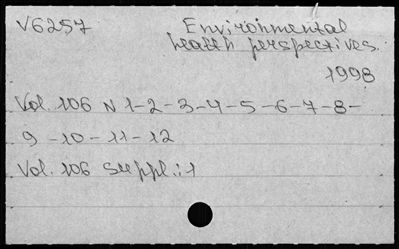 V6257 Environmental
health perspectives.
1998
Vol. 106 N 1-2-3-4-5-6-7-8-
9-10-11-12
Vol. 106 Suppl.:1